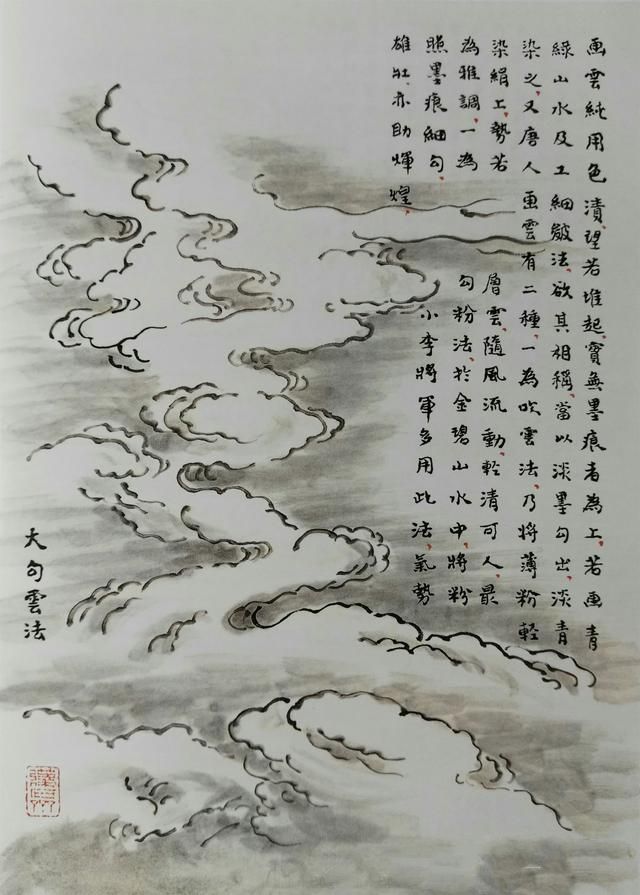 画雲純用色漬望若堆起實無墨痕者為上若画青
綠山水及工細皴法欲其相稱當以淡墨勾出淡青
染之又唐人画雲有二種一為吹雲法乃將薄粉輕
染絹上勢若層雲隨風流動輕清可人最
為雅調一為勾粉法於金碧山水中將粉
照墨痕細勾小李將軍多用此法氣勢
雄壯亦助煇煌
大勾雲法